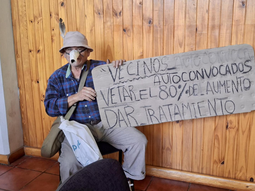 VECINOS
AUTOCONVOCADOS
VETAR EL 80% DE AUMENTO
DAR TRATAMIENTO